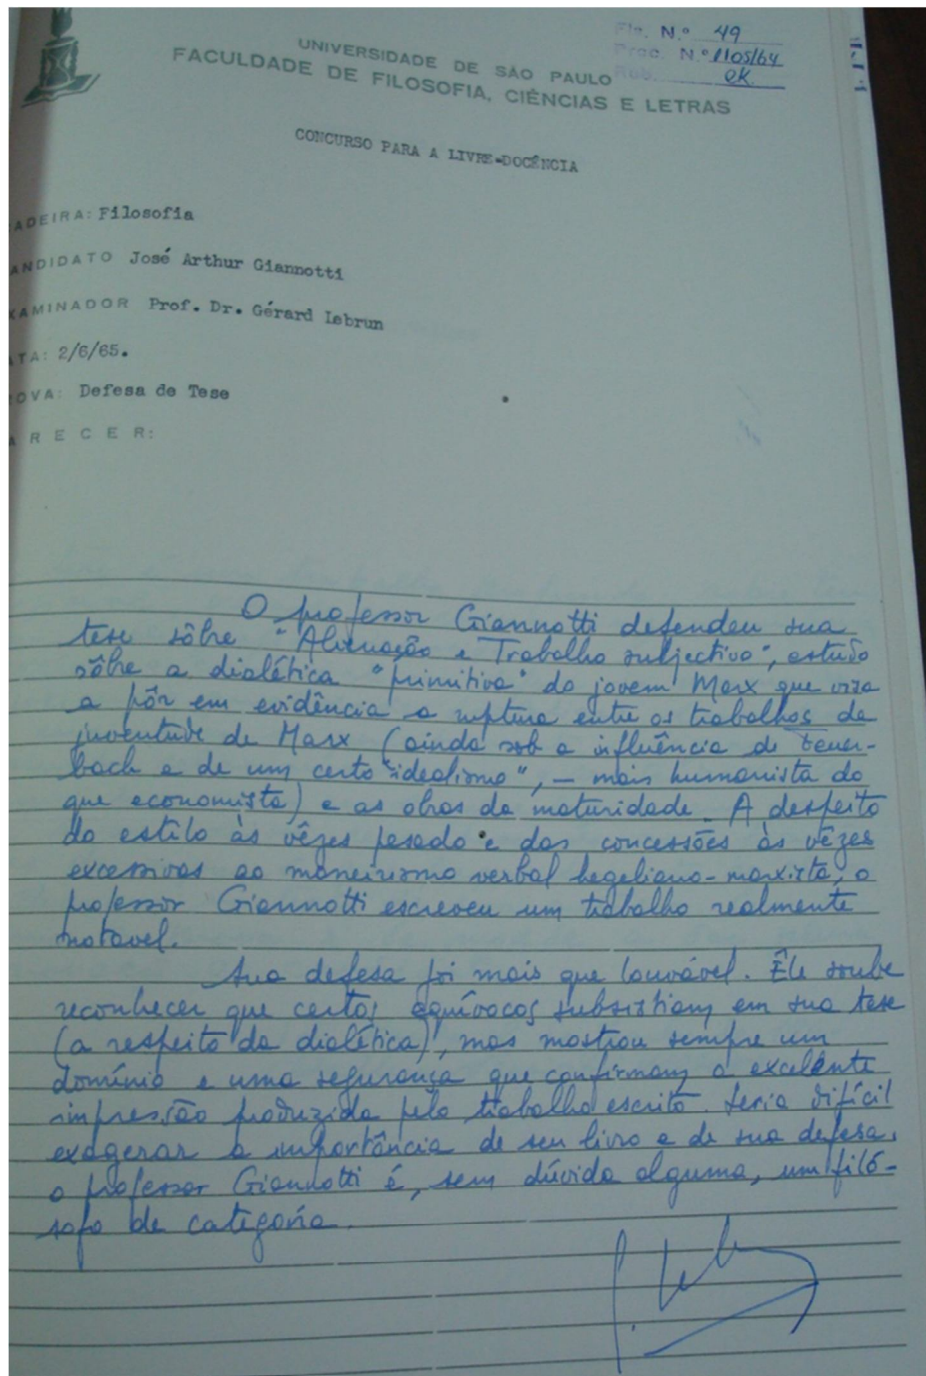 Fls. N.º 49
Proc. N.º 1105/64
Rub. OK.
UNIVERSIDADE DE SÃO PAULO
FACULDADE DE FILOSOFIA, CIÊNCIAS E LETRAS
CONCURSO PARA A LIVRE-DOCÊNCIA
ADEIRA: Filosofia
ANDIDATO José Arthur Giannotti
XAMINADOR Prof. Dr. Gérard Lebrun
ATA: 2/6/65.
OVA: Defesa de Tese
A R E C E R:
O professor Giannotti defendeu sua
tese sôbre "Alienação e Trabalho subjectivo", estudo
sôbre a dialética "primitiva" do jovem Marx que visa
a pôr em evidência a ruptura entre os trabalhos da
juventude de Marx (ainda sob a influência de Feuer-
bach e de um certo "idealismo", — mais humanista do
que economista) e as obras da maturidade. A despeito
do estilo às vêzes pesado e das concessões às vêzes
excessivas ao maneirismo verbal hegeliano-marxista, o
professor Giannotti escreveu um trabalho realmente
notavel.
Sua defesa foi mais que louvável. Êle soube
reconhecer que certos equívocos subsistiam em sua tese
(a respeito da dialética), mas mostrou sempre um
domínio e uma segurança que confirmam a excelente
impressão produzida pelo trabalho escrito. Seria difícil
exagerar a importância de seu livro e de sua defesa.
o professor Giannotti é, sem dúvida alguma, um filó-
sofo de categoria.